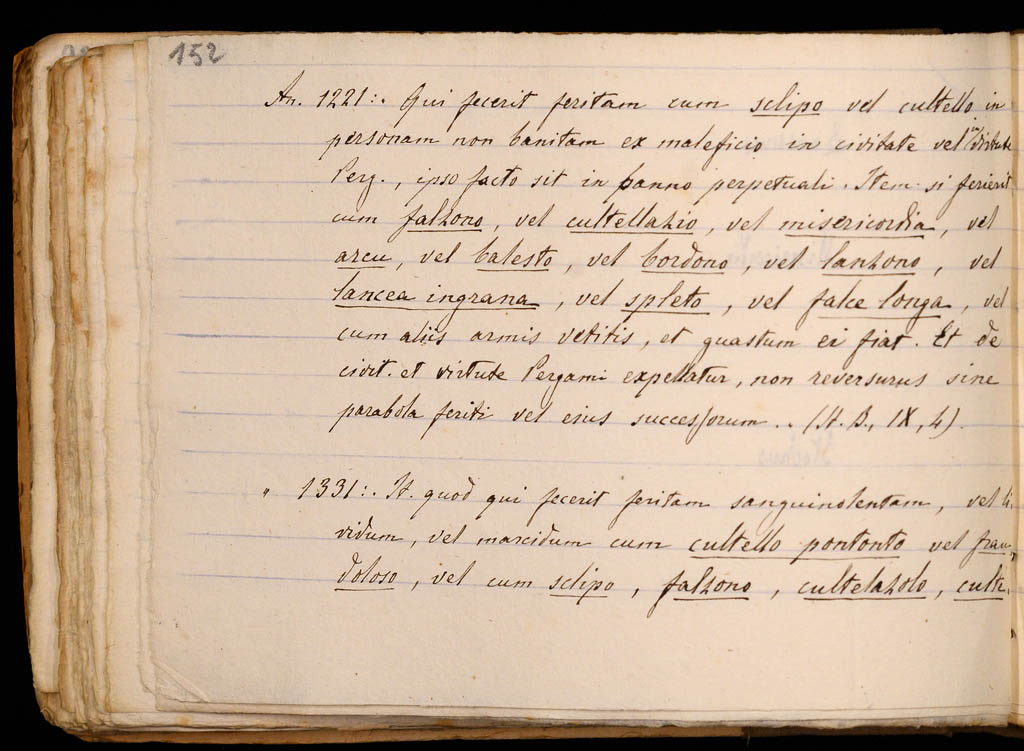 152
An. 1221:. Qui fecerit feritam cum sclipo vel cultello in
personam non banitam ex maleficio in civitate vel in virtute
Perg., ipso facto sit in banno perpetuali. Item si ferierit
cum falzono, vel cultellazio, vel misericordia, vel
arcu, vel balesto, vel bordono, vel lanzono, vel
lancea ingrana, vel spleto, vel falce longa, vel
cum aliis armis vetitis, et guastum ei fiat. Et de
civit. et virtute Pergami expellatur, non reversurus sine
parabola feriti vel eius successorum.. (St. B., IX, 4).
" 1331:. It. quod qui fecerit feritam sanguinolentam, vel li,
vidum, vel marcidum cum cultello pontonto vel frau,
doloso, vel cum sclipo, falzono, cultelazolo, culte,